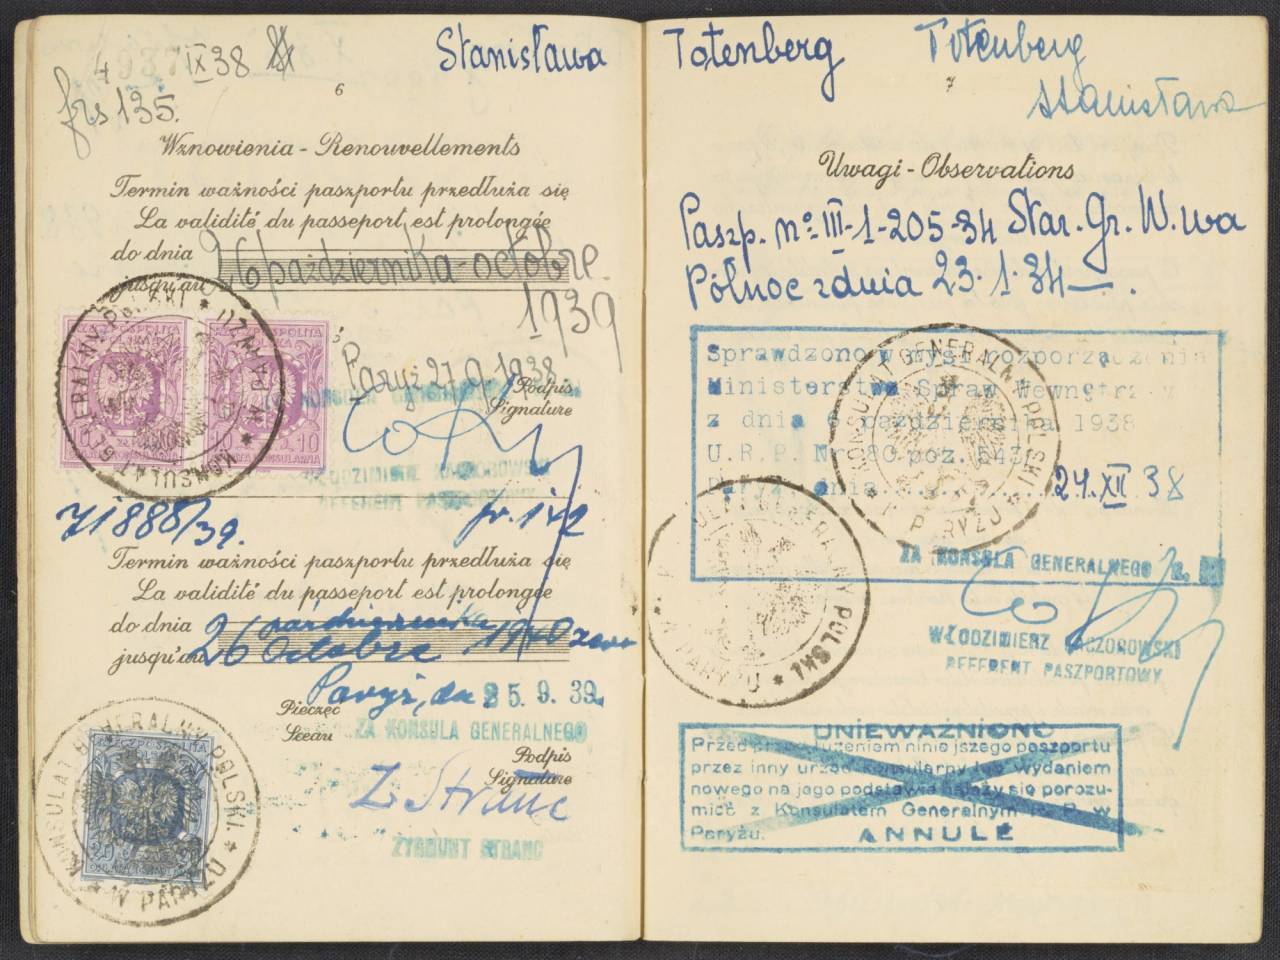 4937 IX 38
frs 135.
Stanisława
6
Wznowienia - Renouvellements
Termin ważności paszportu przedłuża się
La validité du passeport est prolongée
do dnia 26 października - octobre
jusqu'au
1939
RZECZPOSPOLITA
KONSULAT GENERALNY POLSKI * W PARYŻU *
Paryż 27.9.1938
Podpis
Signature
ZA KONSULA GENERALNEGO
WŁODZIMIERZ KACZOROWSKI
REFERENT PASZPORTOWY
71888/39. fr. 142
Termin ważności paszportu przedłuża się
La validité du passeport est prolongée
do dnia 26 października 1940
jusqu'au Octobre
Paryż, dn 25.9.39.
Pieczęć
Sceau
ZA KONSULA GENERALNEGO
Podpis
Signature
Z Stranc
ZYGMUNT STRANC
KONSULAT GENERALNY POLSKI * W PARYŻU *
RZECZPOSPOLITA
20
Totenberg Totenberg
7
Stanisława
Uwagi - Observations
Paszp. nº III-1-205-34 Star. Gr. W. wa
Północ z dnia 23.1.34 — .
Sprawdzono w myśl rozporządzenia
Ministerstwa Spraw Wewnętrzny
z dnia 6 października 1938
U.R.P. Nr 80 poz. 543
Paryż, dnia............24.XII 38
KONSULAT GENERALNY POLSKI * W PARYŻU *
ZA KONSULA GENERALNEGO
WŁODZIMIERZ KACZOROWSKI
REFERENT PASZPORTOWY
KONSULAT GENERALNY POLSKI * W PARYŻU *
UNIEWAŻNIONO
Przed przedłużeniem niniejszego paszportu
przez inny urząd konsularny lub wydaniem
nowego na jego podstawie należy się porozu-
mieć z Konsulatem Generalnym R. P. w
Paryżu.
ANNULÉ